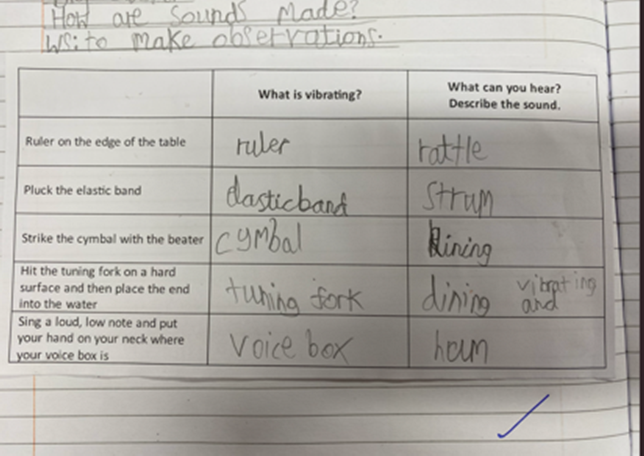 How are Sounds Made?
WS: to make observations.
What is vibrating?
What can you hear?
Describe the sound.
Ruler on the edge of the table
ruler
rattle
Pluck the elastic band
elasticband
Strum
Strike the cymbal with the beater
cymbal
Rining
Hit the tuning fork on a hard
surface and then place the end
into the water
tuning fork
dining vibrating
and
Sing a loud, low note and put
your hand on your neck where
your voice box is
voice box
hum